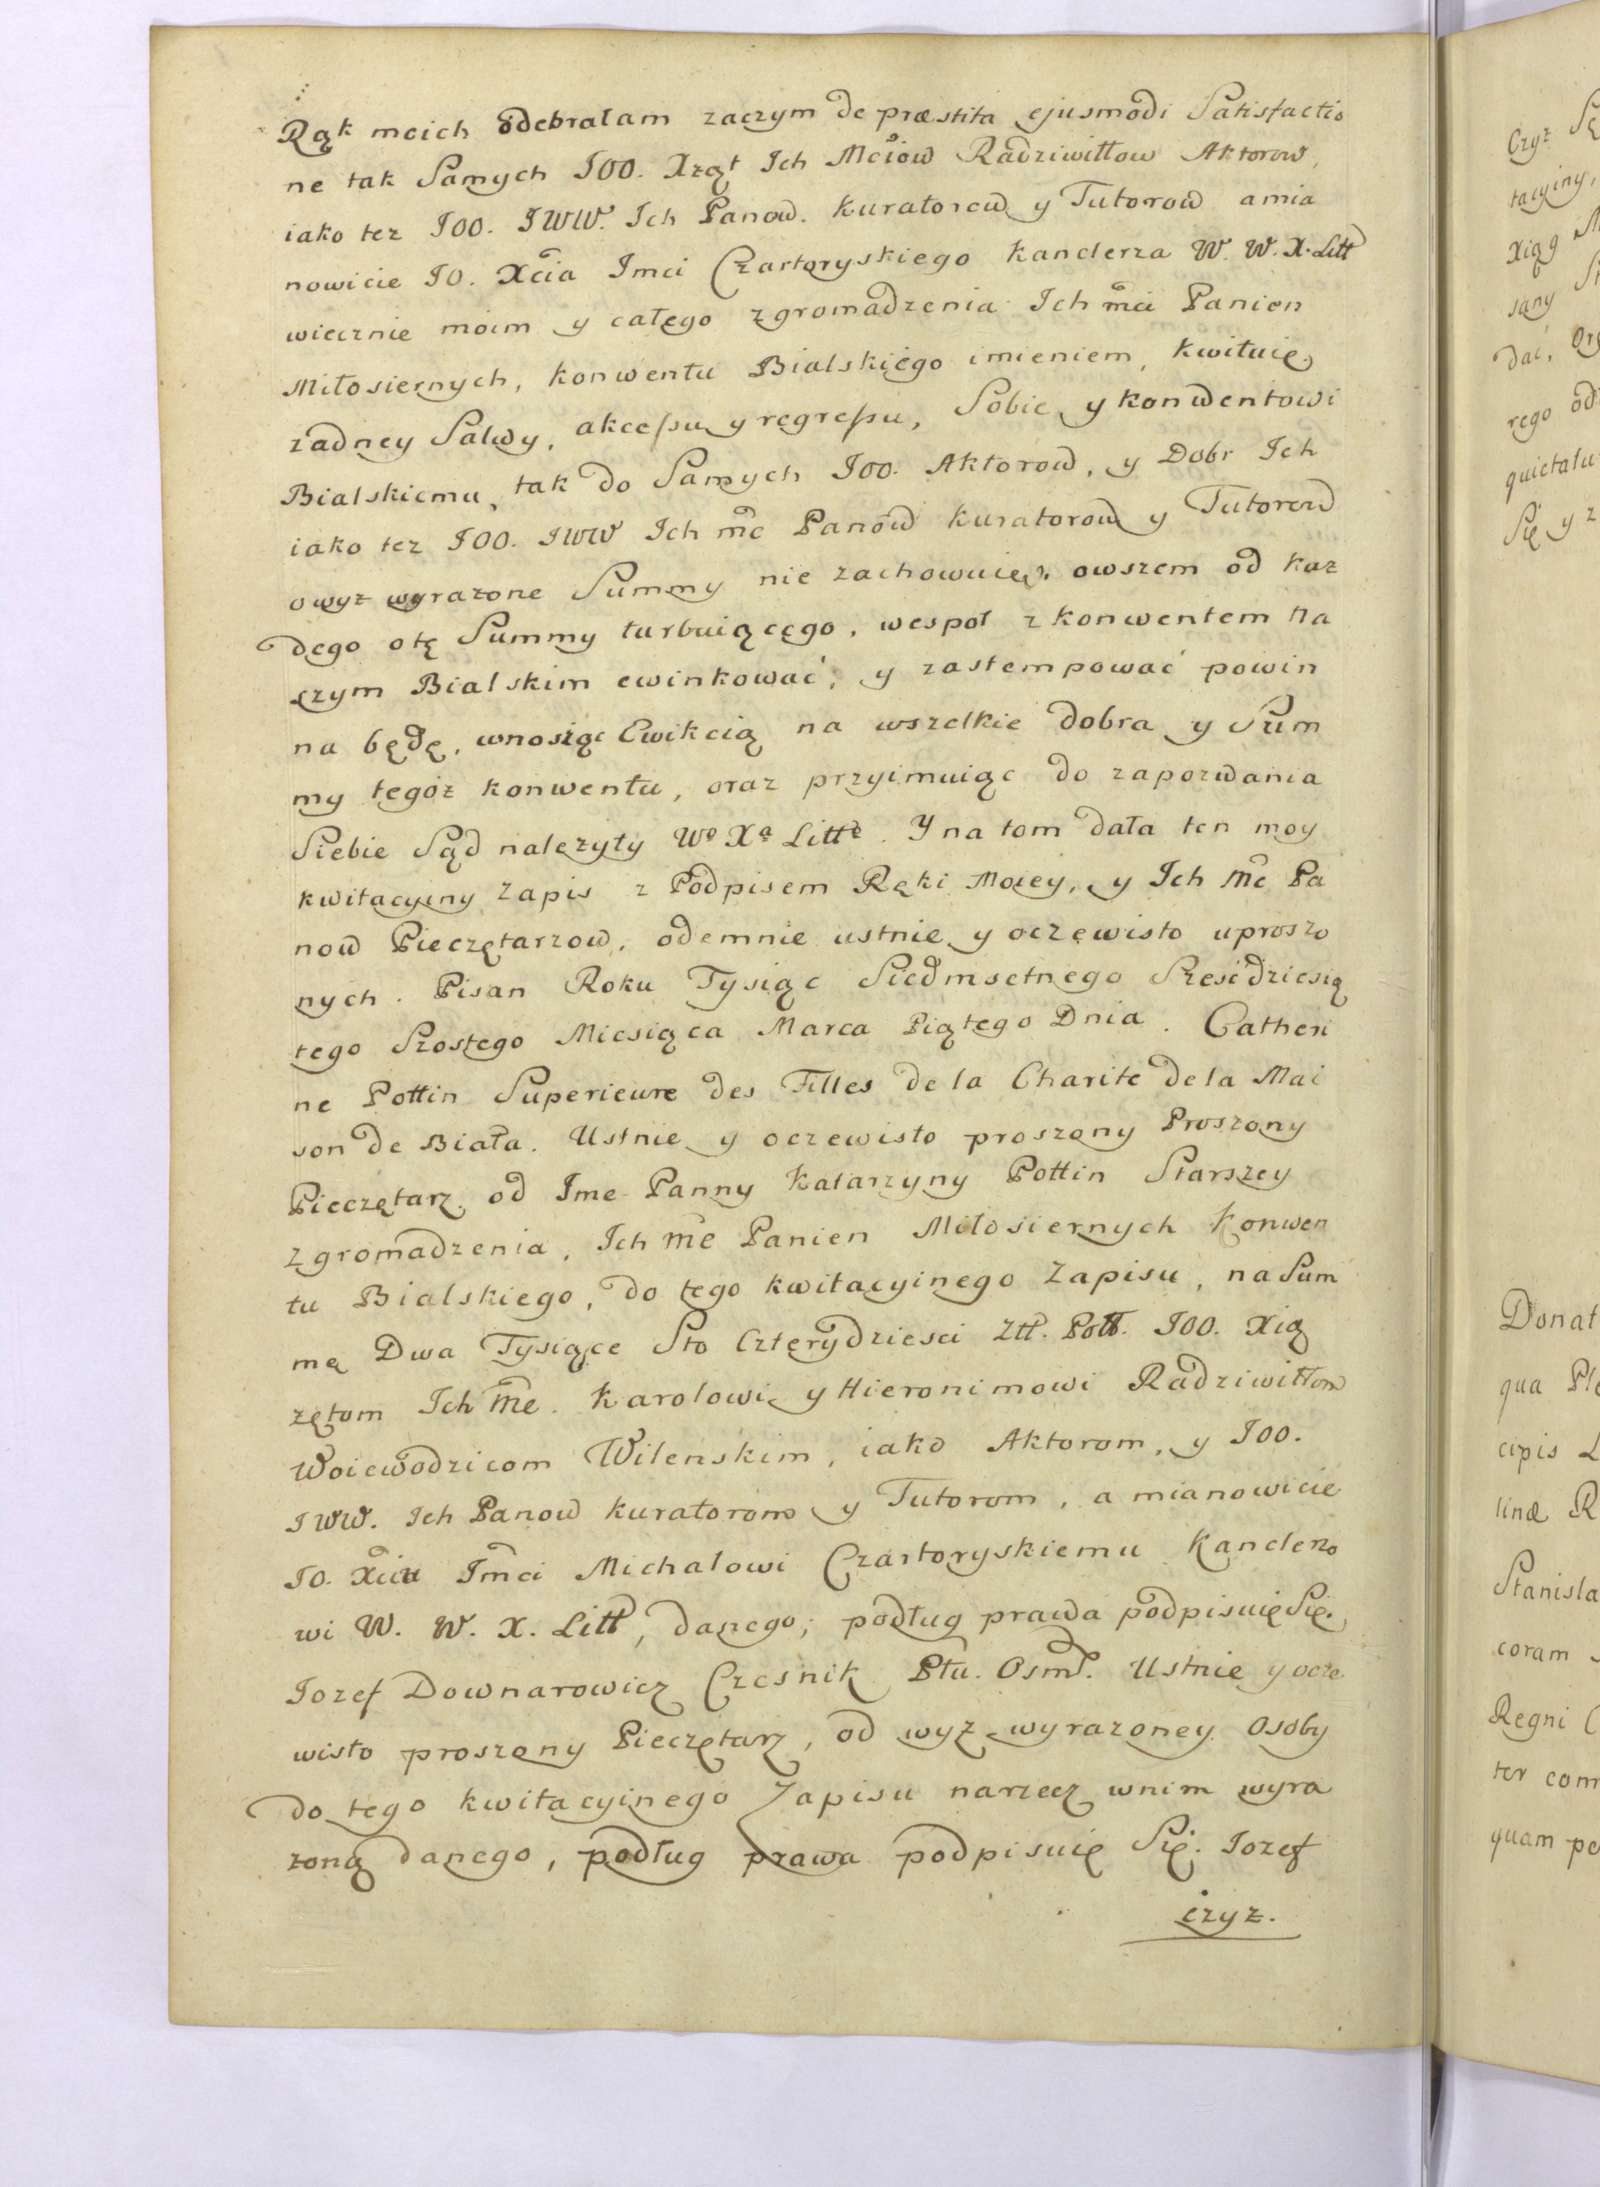 Rąk moich odebrałam zaczym de præstita ejusmodi Satisfactio
ne tak Samych JOO. Xząt Ich Mciow Radziwiłłow Aktorow,
iako tez JOO. JWW. Ich Panow. Kuratorow y Tutorow a mia
nowicie JO. Xcia Imci Czartoryskiego Kanclerza W. W. X. Litt
wiecznie moim y całego zgromadzenia Ich mci Panien
Miłosiernych, Konwentu Bialskiego imieniem, kwituię.
zadney Salwy, akcessu y regressu, Sobie y Konwentowi
Bialskiemu, tak do Samych Joo. Aktorow, y Dobr Ich
iako tez JOO. JWW Ich mc Panow Kuratorow y Tutorow
o wyz wyrazone Summy nie zachowuię, owszem od kaz
dego o tę Summy turbuiącego, wespoł z konwentem Na
szym Bialskim ewinkować, y zastempować powin
na będę, wnosząc Ewikcią na wszelkie dobra y Sum
my tegoz konwentu, oraz przyimuiąc do zapozwania
Siebie Sąd nalezyty Wo Xa Litto. Y na tom dała ten moy
kwitacyiny zapis z Podpisem Ręki Moiey, y Ich Mc Pa
now Pieczętarzow, odemnie ustnie y oczewisto uproszo
nych. Pisan Roku Tysiąc Siedmsetnego Szescdziesią
tego Szostego Miesiąca Marca Piątego Dnia. Catheri
ne Pottin Superieure des Filles de la Charite de la Mai
son de Biała. Ustnie y oczewisto proszony Proszony
Pieczętarz od Ime Panny Katarzyny Pottin Starszey
zgromadzenia, Ich Mc Panien Miłosiernych Konwen
tu Bialskiego, do tego kwitacyinego Zapisu, na Sum
mę Dwa Tysiące Sto Czterydziesci Ztł. Poll. JOO. Xią
zętom Ich Mc. Karolowi y Hieronimowi Radziwiłłom
Woiewodzicom Wilenskim, iako Aktorom, y JOO.
JWW. Ich Panow Kuratorom y Tutorom, a mianowicie
JO. Xciu Imci Michałowi Czartoryskiemu Kanclerzo
wi W. W. X. Litt, danego, podług prawa podpisuię Się.
Jozef Downarowicz Czesnik Ptu. Osml. Ustnie y ocze
wisto proszony Pieczętarz, od wyz wyrazoney Osoby
do tego kwitacyinego Zapisu na rzecz w nim wyra
zoną danego, podług prawa podpisuię Się. Jozef
czyz.
Czyz Są
tacyiny,
Xiąg
sany
dać,
rego od
quietatu
Się y z
Donat
qua Ple
cipis L
linæ R
Stanisla
coram
Regni C
ter com
quam pe